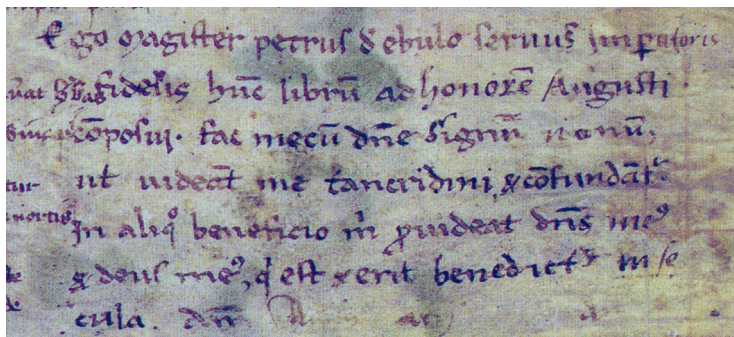 Ego magister petrus d̄ ebulo seruus imꝑatoris
fidelis hūc librū ad honorē Augusti
cōposui. fac mecū dn̄e signū
ut uideāt me tancridini ⁊ cōfundāt᷑
In aliqͦ beneficio m̄ ꝓuideat dn̄s meꝰ
⁊ deus meꝰ, qͥ est ⁊ erit benedictꝰ in se
cula. am̄